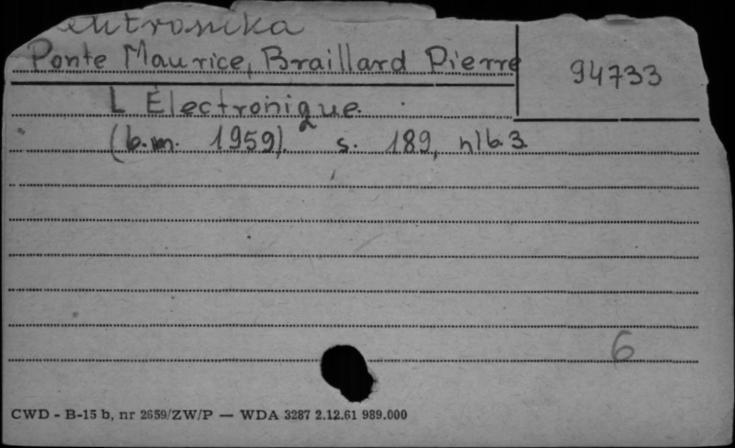 elektronika
Ponte Maurice, Braillard Pierre
94733
L Électronique.
(b.m. 1959). s. 189, nlb. 3
6
CWD - B-15 b, nr 2659/ZW/P — WDA 3287 2.12.61 989.000